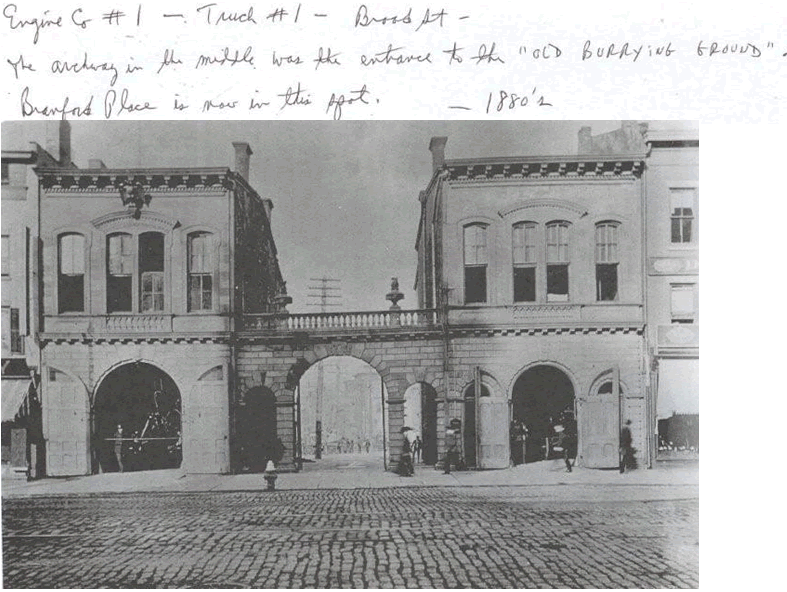 Engine Co # 1 — Truck #1 — Broad St —
The archway in the middle was the entrance to the "OLD BURRYING GROUND".
Branford Place is now in this spot. — 1880's